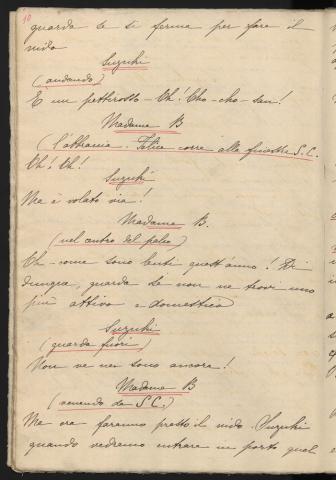 10
guarda se si ferma per fare il
nido
Suzuki
(andando)
È un pettirosso - Oh! Cho-cho-san!
Madame B
(l'abbraccia. Felice corre alla finestra S.C.
Oh! Oh!
Suzuki
Ma è volato via!
Madame B.
(nel centro del palco)
Oh - come sono lenti quest'anno! Di
dunque, guarda se non ne trovi uno
più attivo e domestico
Suzuki
(guarda fuori)
Non ve ne sono ancora!
Madame B
(venendo da S.C.)
Ma ora faranno presto il nido. Suzuki
quando vedremo entrare in porto quel